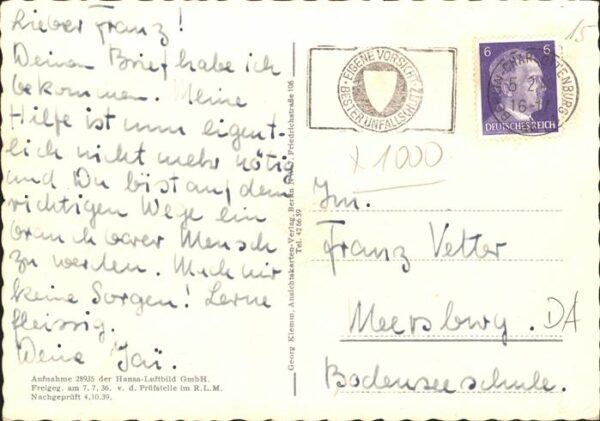 Lieber Franz!
Deinen Brief habe ich
bekommen. Meine
Hilfe ist nun eigent-
lich nicht mehr nötig
und Du bist auf dem
richtigen Wege ein
brauchbarer Mensch
zu werden. Mach mir
keine Sorgen! Lerne
fleissig.
Deine
Aufnahme 28935 der Hansa-Luftbild GmbH.
Freigeg. am 7. 7. 36. v. d. Prüfstelle im R.L.M.
Nachgeprüft 4.10.39.
Georg Klemm, Ansichtskarten-Verlag, Berlin Friedrichstraße 106
Tel. 42 66 39
EIGENE VORSICHT
BESTER UNFALLSCHUTZ
6 6
DEUTSCHES REICH
BERLIN-CHARLOTTENBURG
15
x 1000
Franz Vetter
Meersburg. DA
Bodenseeschule.